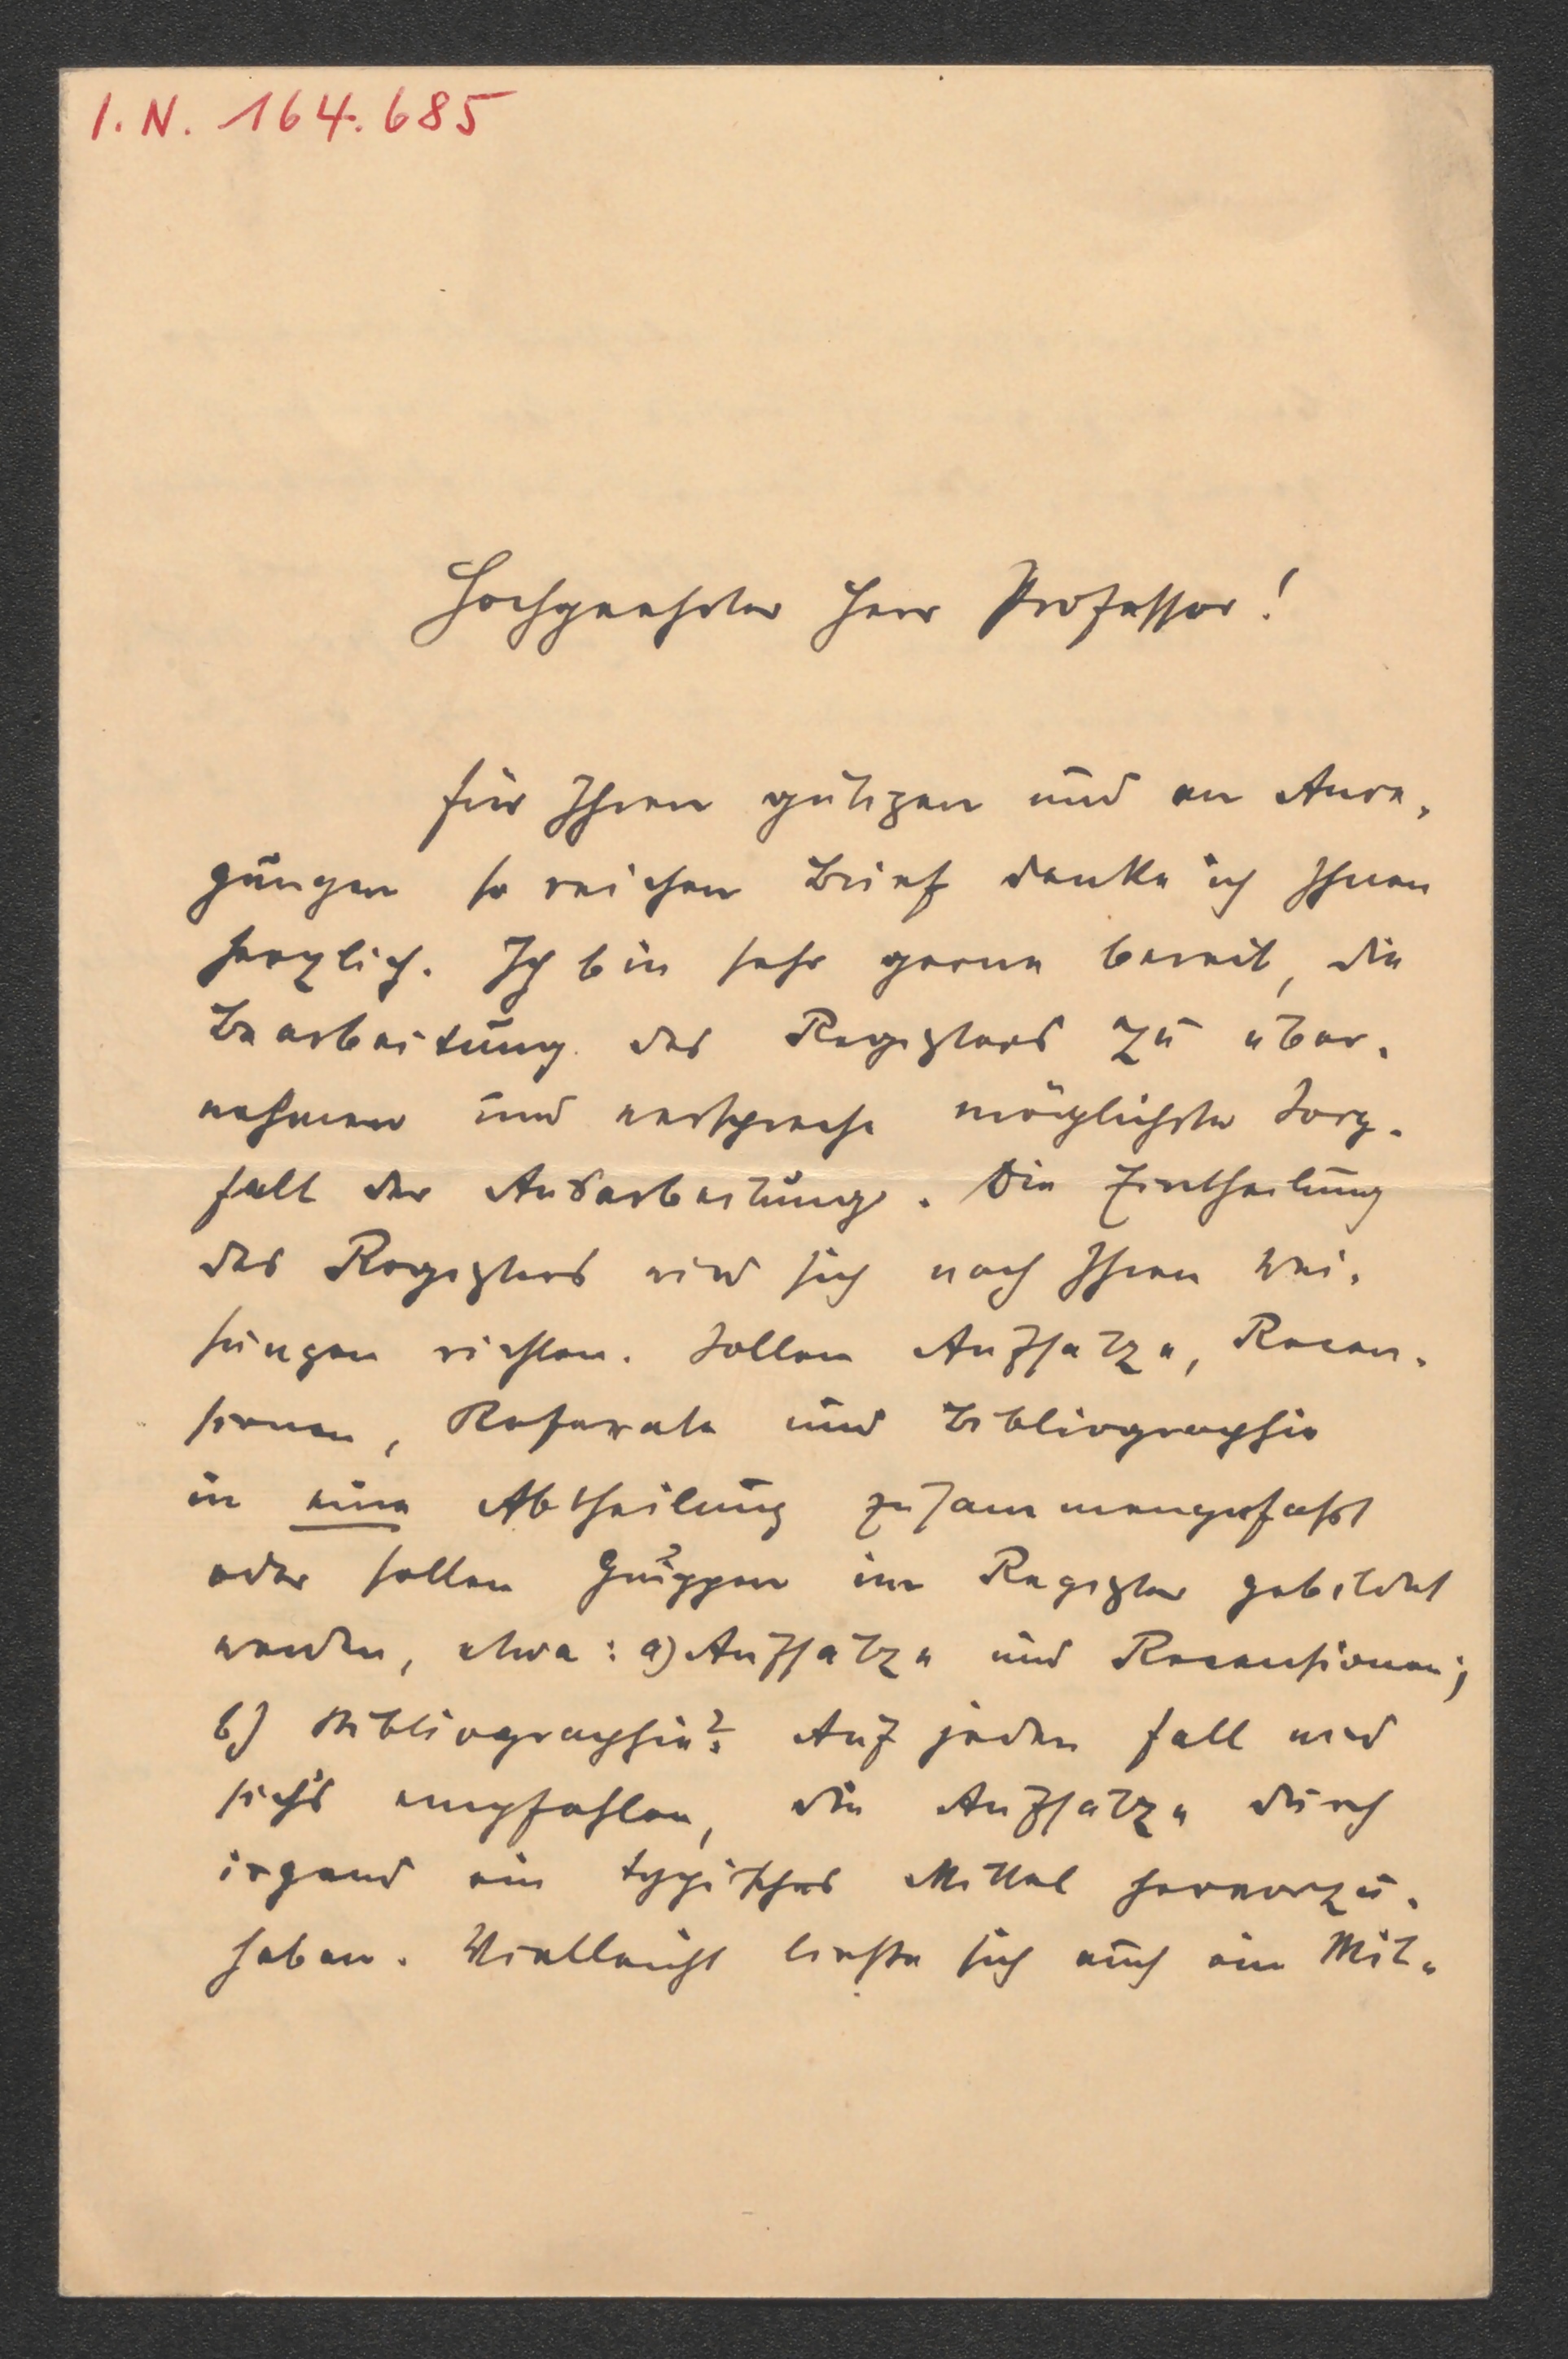 I. N. 164.685
Hochgeehrter Herr Professor!
für Ihren gütigen und an Anre-
gungen so reichen Brief danke ich Ihnen
herzlich. Ich bin sehr gerne bereit, die
Bearbeitung des Registers zu über-
nehmen und verspreche möglichste Sorg-
falt der Ausarbeitung. Die Eintheilung
des Registers wird sich nach Ihren Wei-
sungen richten. Sollen Aufsätze, Recen-
sionen, Referate und Bibliographie
in eine Abtheilung zusammengefaßt
oder sollen Gruppen im Register gebildet
werden, etwa: a) Aufsätze und Recensionen;
b) Bibliographie? Auf jeden Fall wird
sich's empfehlen, die Aufsätze durch
irgend ein typisches Mittel hervorzu-
heben. Vielleicht ließe sich auch ein Mit-